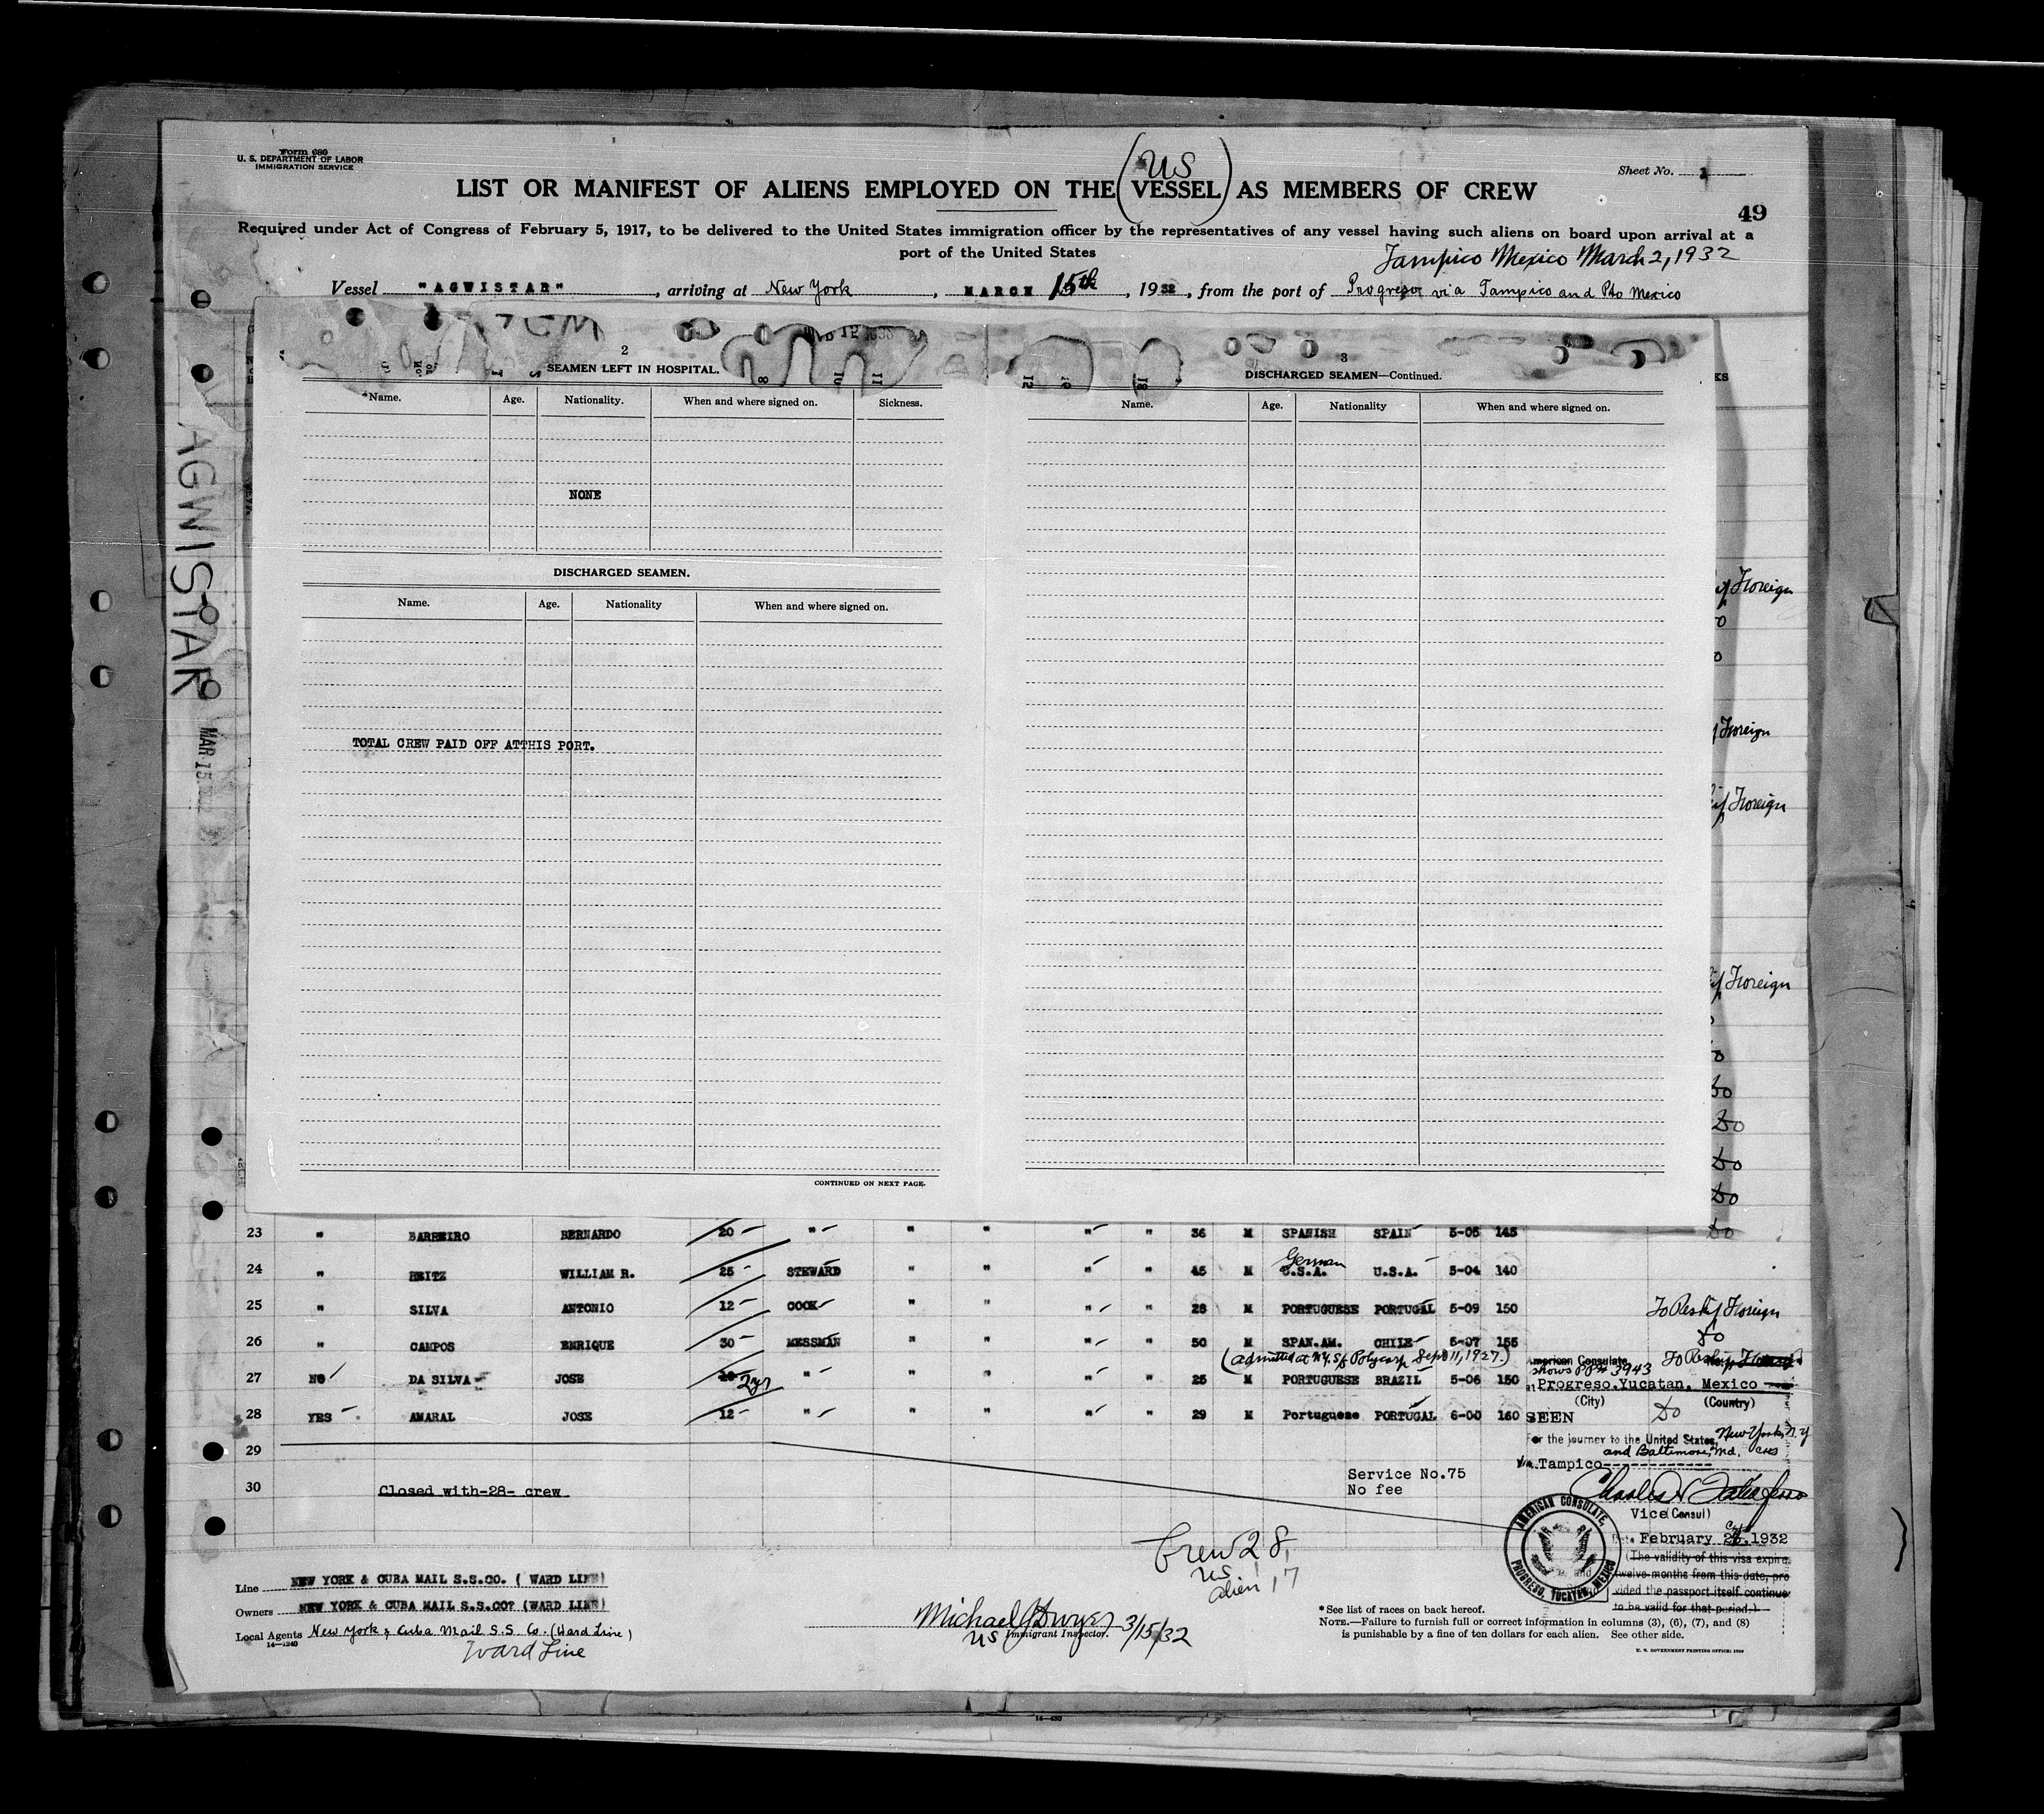 Form 680
U. S. DEPARTMENT OF LABOR
IMMIGRATION SERVICE
Sheet No. 1
US
LIST OR MANIFEST OF ALIENS EMPLOYED ON THE (VESSEL) AS MEMBERS OF CREW
49
Required under Act of Congress of February 5, 1917, to be delivered to the United States immigration officer by the representatives of any vessel having such aliens on board upon arrival at a
port of the United States
Tampico Mexico March 2, 1932
Vessel "AGWISTAR", arriving at New York, MARCH 15th, 1932, from the port of Progreso via Tampico and Pto Mexico
AGWISTAR
MAR 15 1932
2
SEAMEN LEFT IN HOSPITAL.
Name. Age. Nationality. When and where signed on. Sickness.
NONE
DISCHARGED SEAMEN.
Name. Age. Nationality When and where signed on.
TOTAL CREW PAID OFF ATTHIS PORT.
CONTINUED ON NEXT PAGE.
3
DISCHARGED SEAMEN—Continued.
Name. Age. Nationality When and where signed on.
KS
Foreign
Foreign
Foreign
Foreign
Do
Do
Do
Do
Do
23 " BARREIRO BERNARDO 20 " " " " " 36 M SPANISH SPAIN 5-05 145
German
24 " HEITZ WILLIAM R. 25 STEWARD " " " " 45 M U.S.A. U.S.A. 5-04 140
25 " SILVA ANTONIO 12 COOK " " " " 28 M PORTUGUESE PORTUGAL 5-09 150 To Reship Foreign
26 " CAMPOS ENRIQUE 30 MESSMAN " " " " 50 M SPAN.AM. CHILE 5-07 155 Do
(admitted at N.Y. SS Polycarp Sept 11, 1927.)
27 NO DA SILVA JOSE 2yr " " " " " 25 M PORTUGUESE BRAZIL 5-06 150
28 YES AMARAL JOSE 12 " " " " " 29 M Portuguese PORTUGAL 6-00 160 Do
29
30 Closed with-28- crew
American Consulate
shows PP# 3943
at Progreso, Yucatan, Mexico
(City) (Country)
SEEN
For the journey to the United States, New York, N.Y
and Baltimore, Md.
Via Tampico
Service No.75
No fee
Vice (Consul)
February 1932
(The validity of this visa expires
twelve months from this date, pro
vided the passport itself continue
to be valid for that period.)
AMERICAN CONSULATE, PROGRESO, YUCATAN, MEXICO
Crew 28
US
alien 17
Line NEW YORK & CUBA MAIL S.S.CO. ( WARD LINE)
Owners NEW YORK & CUBA MAIL S.S.CO? (WARD LINE)
Local Agents New York & Cuba Mail S.S. Co. (Ward Line)
14—1240
Ward Line
Michael J Dwyer 3/15/32
US Immigrant Inspector.
* See list of races on back hereof.
NOTE.—Failure to furnish full or correct information in columns (3), (6), (7), and (8)
is punishable by a fine of ten dollars for each alien. See other side.
U. S. GOVERNMENT PRINTING OFFICE: 1929